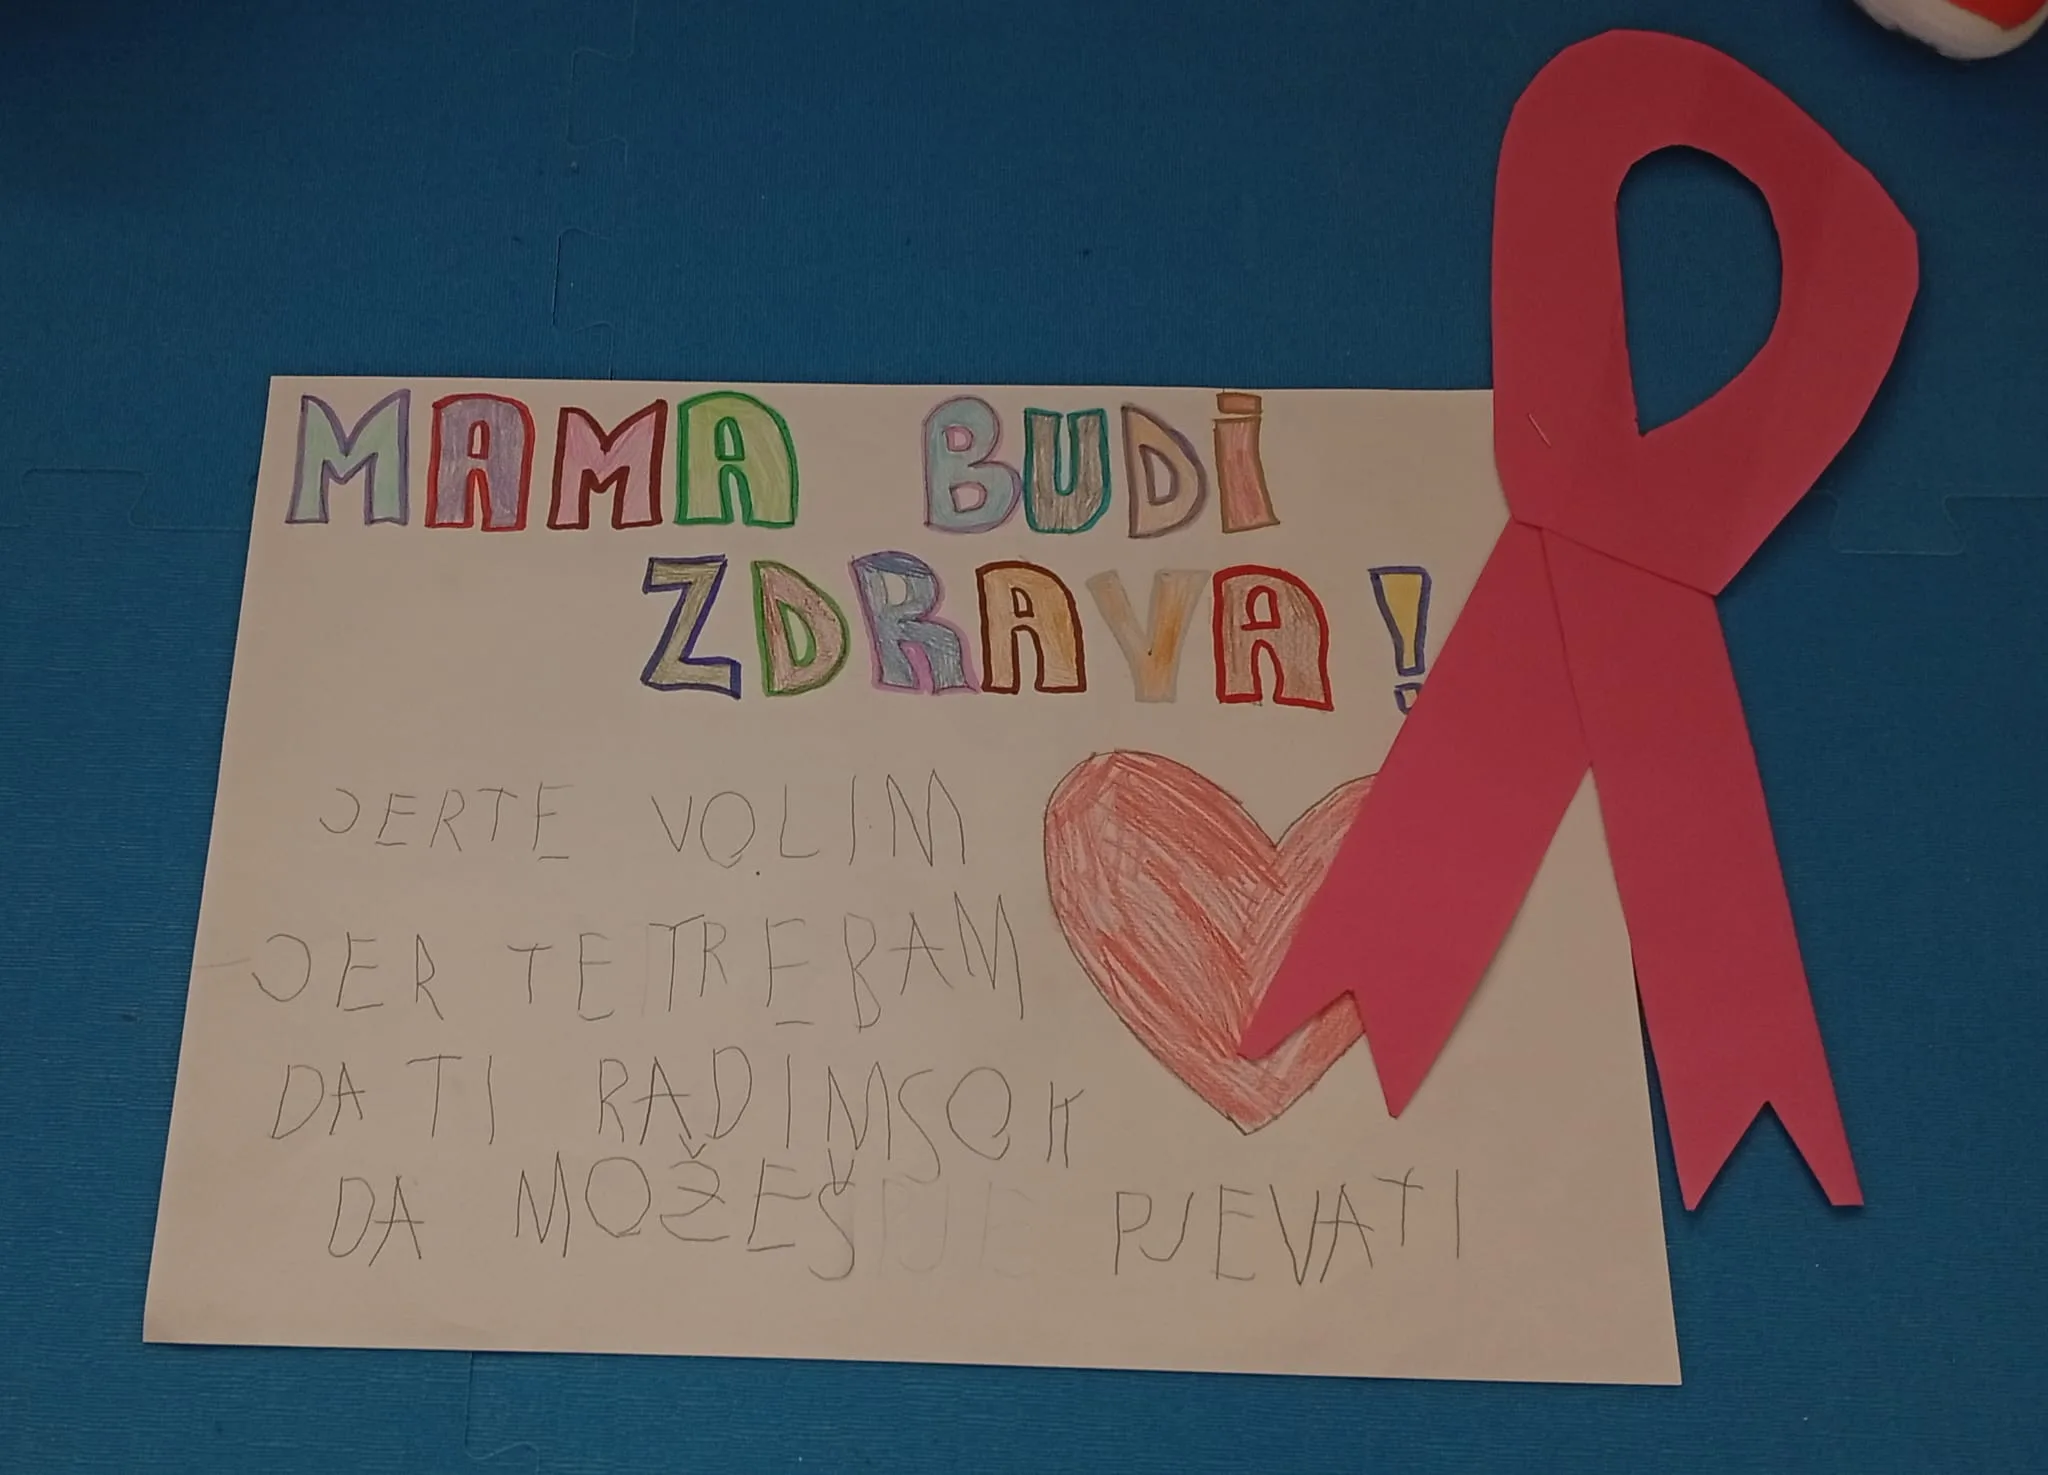 MAMA BUDI
ZDRAVA!
JERTE VOLIM
JER TETREBAM
DA TI RADIMSOK
DA MOŽEŠ PJEVATI